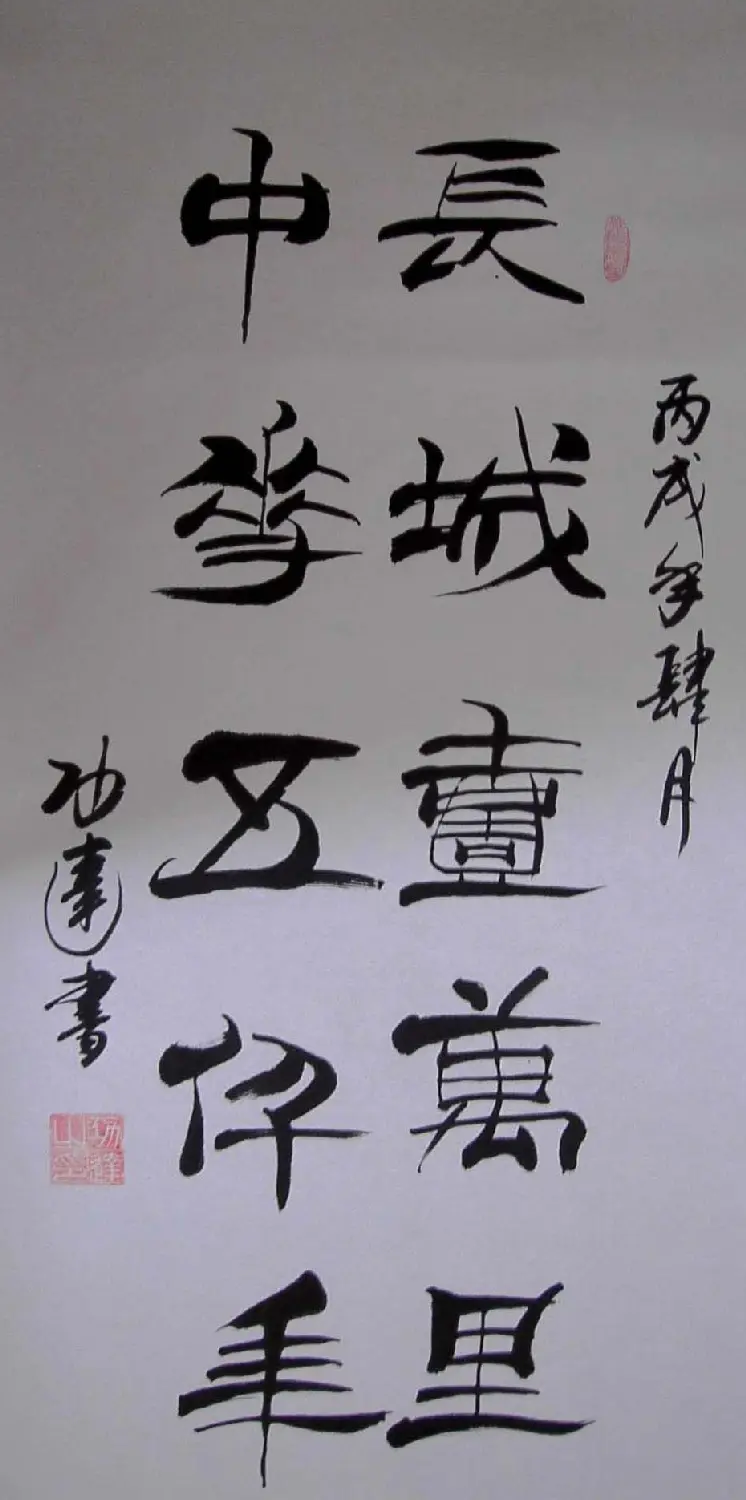 丙戌年肆月
長城壹萬里
中華五仟年
功達書